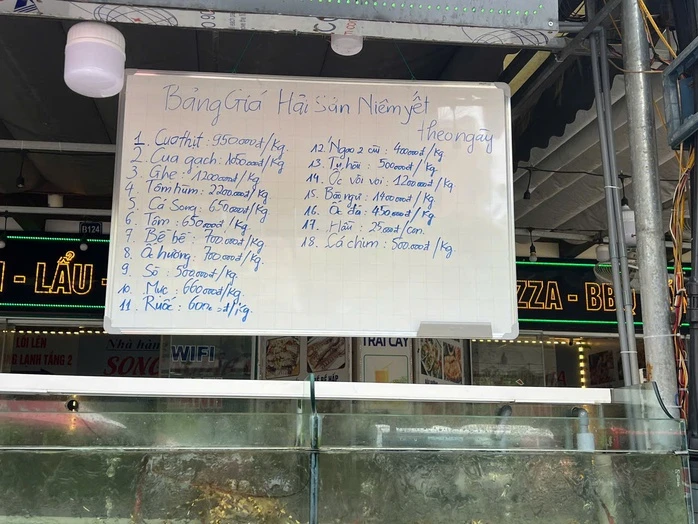 Bảng Giá Hải Sản Niêm yết
theo ngày
1. Cua thịt : 950000đ/kg.
2. Cua gạch : 1050000đ/kg
3. Ghẹ : 1200000đ/kg
4. Tôm hùm : 2200.000đ/kg
5. Cá Song : 650.000đ/kg
6. Tôm : 650.000đ/kg
7. Bề bề : 700000đ/kg
8. Ốc hương : 700.000đ/kg.
9. Sò : 500000đ/kg.
10. Mực : 660000đ/kg.
11. Ruốc : 600000đ/kg.
12. Ngao 2 cùi : 400000đ/kg.
13. Tu hài : 500000đ/kg.
14. Ốc vòi voi : 1200000đ/kg
15. Bào ngư : 1400000đ/kg.
16. Ốc đá : 450000đ/kg.
17. Hàu : 25000đ/con.
18. Cá chim : 500.000đ/kg.
B124
- LẨU -
ZZA - BBQ
LỐI LÊN
G LẠNH TẦNG 2
Nhà hàng
SONG
WIFI
TRÁI CÂY